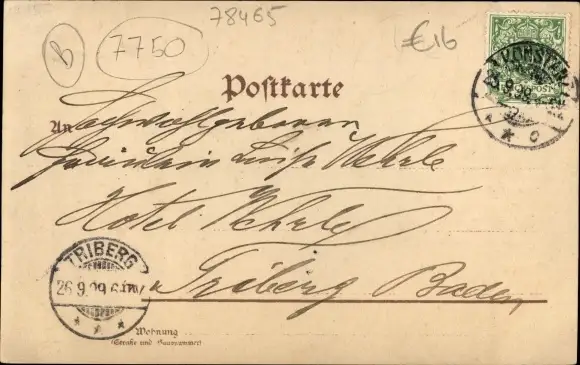 78465
B
7750
€16
KONSTANZ
9.99
Postkarte
An Hochwohlgeboren
Fräulein Luise Wehrle
Hotel Wehrle
Triberg Baden
TRIBERG
26.9.99.6-7N.
Wohnung
(Straße und Hausnummer)